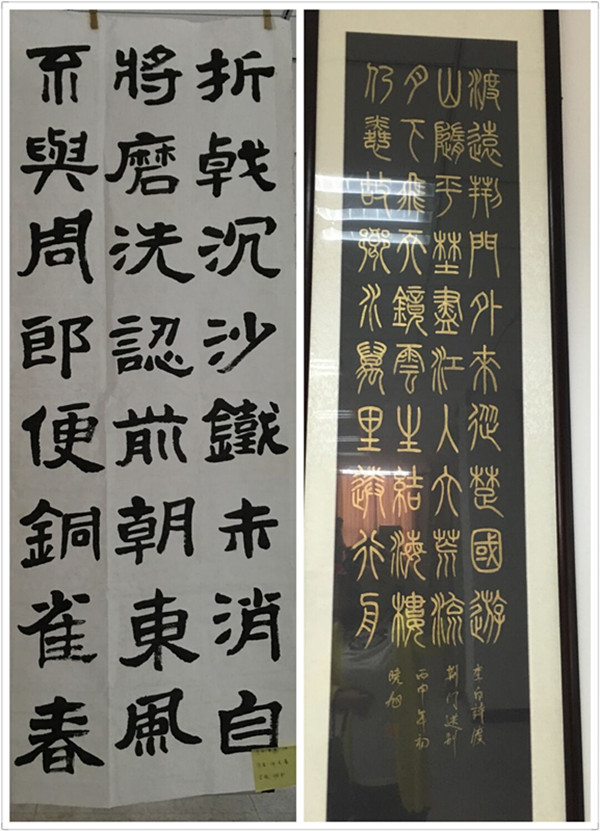 折戟沉沙鐵未消自
將磨洗認前朝東風
不與周郎便銅雀春
渡遠荊門外來從楚國遊
山隨平埜盡江入大荒流
月下飛天鏡雲生結海樓
仍憐故鄉水萬里送行舟
李白詩渡
荊门送别
丙申年初
晓旭